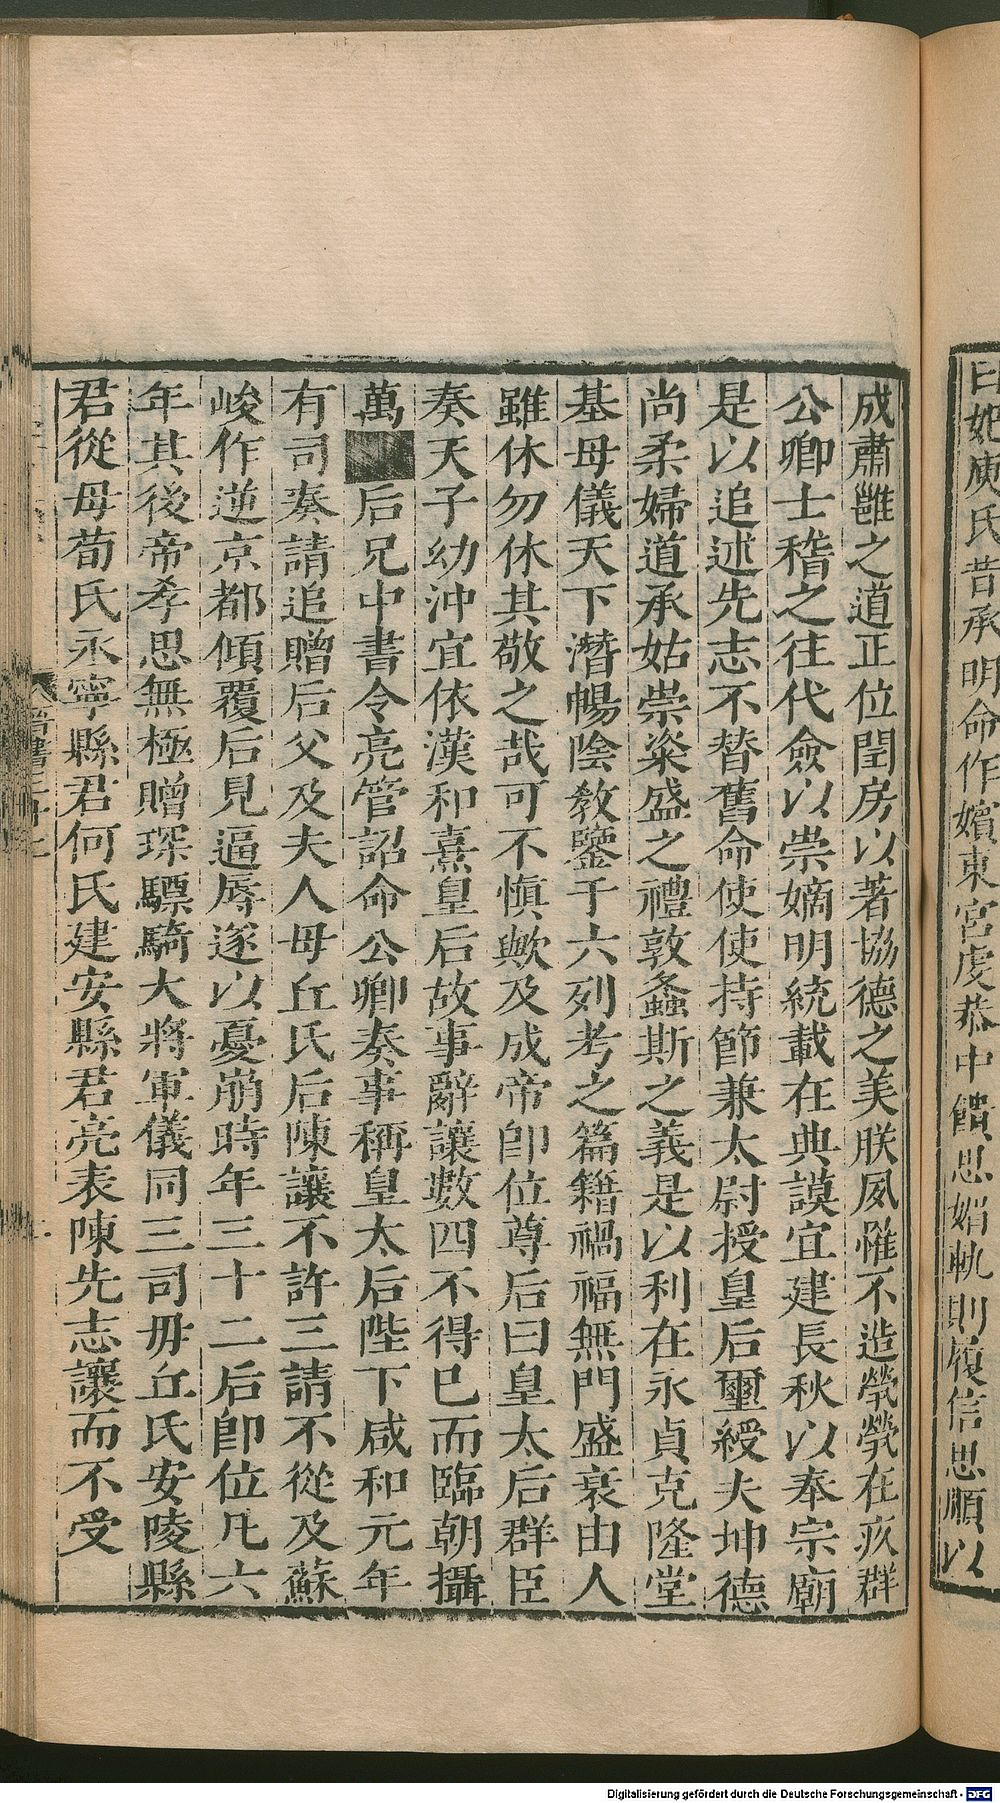 曰妃庾氏昔承明命作嬪東宮虔恭中饋思媚軌則履信思順以
成肅雝之道正位閨房以著協德之美朕夙罹不造煢煢在疚群
公卿士稽之往代僉以崇嫡明統載在典謨宜建長秋以奉宗廟
是以追述先志不替舊命使使持節兼太尉授皇后璽綬夫坤德
尚柔婦道承姑崇粢盛之禮敦螽斯之義是以利在永貞克隆堂
基母儀天下潛暢陰教鑒于六列考之篇籍禍福無門盛衰由人
雖休勿休其敬之哉可不慎歟及成帝卽位尊后曰皇太后群臣
奏天子幼沖宜依漢和熹皇后故事辭讓數四不得已而臨朝攝
萬后兄中書令亮管詔命公卿奏事稱皇太后陛下咸和元年
有司奏請追贈后父及夫人毋丘氏后陳讓不許三請不從及蘇
峻作逆京都傾覆后見逼辱遂以憂崩時年三十二后卽位凡六
年其後帝孝思無極贈琛驃騎大將軍儀同三司毋丘氏安陵縣
君從母荀氏永寧縣君何氏建安縣君亮表陳先志讓而不受
Digitalisierung gefördert durch die Deutsche Forschungsgemeinschaft - DFG